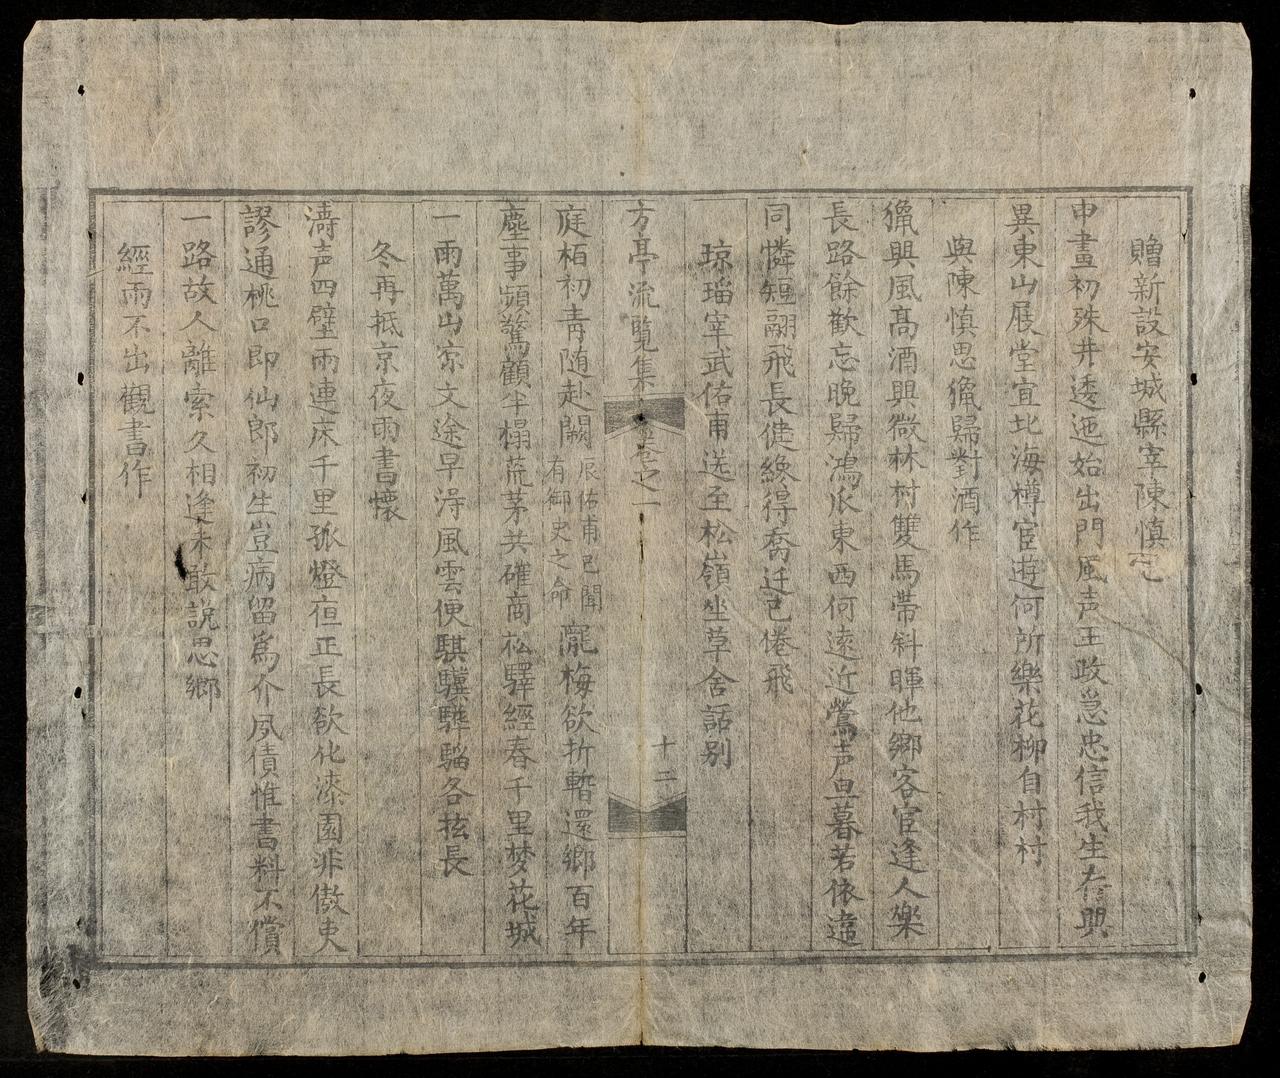 贈新設安城縣宰陳慎
申畫初殊井逶迤始出門風声王政急忠信我生存興
異東山展堂宜北海樽宦遊何所樂花柳自村村
與陳慎思獵歸對酒作
獵興風高酒興微林村雙馬帶斜暉他鄉客宦逢人樂
長路餘歡忘晚歸鴻爪東西何遠近鶯声旦暮若依違
同憐短翮飛長倢纔得喬迁已倦飛
琼瑙宰武佑甫送至松嶺坐草舍話别
方亭流覧集
卷之一
十二
庭栢初靑随赴闕
辰佑甫已聞
有御史之命
隴梅欲折暫還鄉百年
塵事頻驚顧半榻蔬茅共確商松驛經春千里梦花城
一雨萬山凉文途早淂風雲便騏驥驊騮各抟長
冬再抵京夜雨書懷
濤声四壁雨連床千里孤燈夜正長欲化漆園非傲吏
謬通桃口即仙郎初生豈病留為介夙債惟書料不償
一路故人離索久相逢未敢説思鄉
經雨不出觀書作